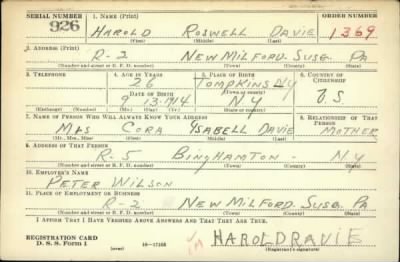 SERIAL NUMBER 1. NAME (Print) ORDER NUMBER
926 HAROLD ROSWELL DAVIE 1369
(First) (Middle) (Last)
2. ADDRESS (Print)
R-2 NEW MILFORD. SUSQ. PA
(Number and street or R. F. D. number) (Town) (County) (State)
3. TELEPHONE 4. AGE IN YEARS 5. PLACE OF BIRTH 6. COUNTRY OF CITIZENSHIP
26 TOMPKINS NY
DATE OF BIRTH (Town or county)
9 13-1914 NY U.S.
(Exchange) (Number) (Mo.) (Day) (Yr.) (State or country)
7. NAME OF PERSON WHO WILL ALWAYS KNOW YOUR ADDRESS 8. RELATIONSHIP OF THAT PERSON
MRS CORA YSABELL DAVIE MOTHER
(Mr., Mrs., Miss) (First) (Middle) (Last)
9. ADDRESS OF THAT PERSON
R-5 BINGHAMTON - NY
(Number and street or R. F. D. number) (Town) (County) (State)
10. EMPLOYER'S NAME
PETER WILSON
11. PLACE OF EMPLOYMENT OR BUSINESS
R-2 NEW MILFORD. SUSQ. PA
(Number and street or R. F. D. number) (Town) (County) (State)
I AFFIRM THAT I HAVE VERIFIED ABOVE ANSWERS AND THAT THEY ARE TRUE.
REGISTRATION CARD
D. S. S. Form 1 (over) 16-17105 HAROLD R DAVIE
(Registrant's signature)